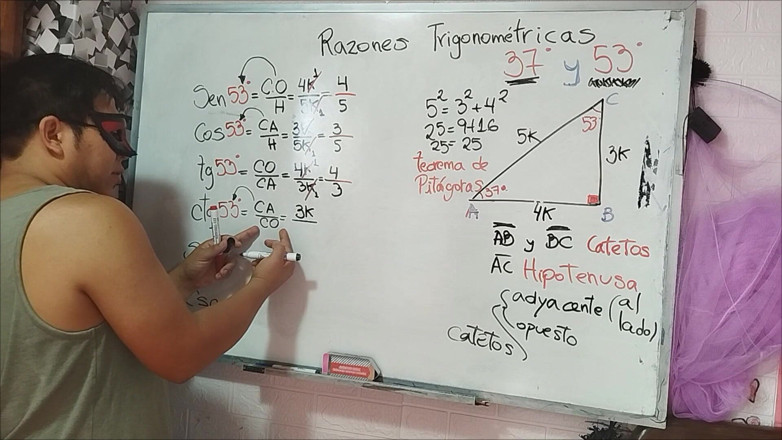 Razones Trigonométricas
37° y 53°
Sen 53° = CO/H = 4K/5K = 4/5
Cos 53° = CA/H = 3K/5K = 3/5
tg 53° = CO/CA = 4K/3K = 4/3
ctg 53° = CA/CO = 3K
5² = 3² + 4²
25 = 9+16
25 = 25
teorema de
Pitágoras
C
53°
5K
3K
37°
A
4K
B
AB y BC Catetos
AC Hipotenusa
catetos { adyacente (al lado)
opuesto